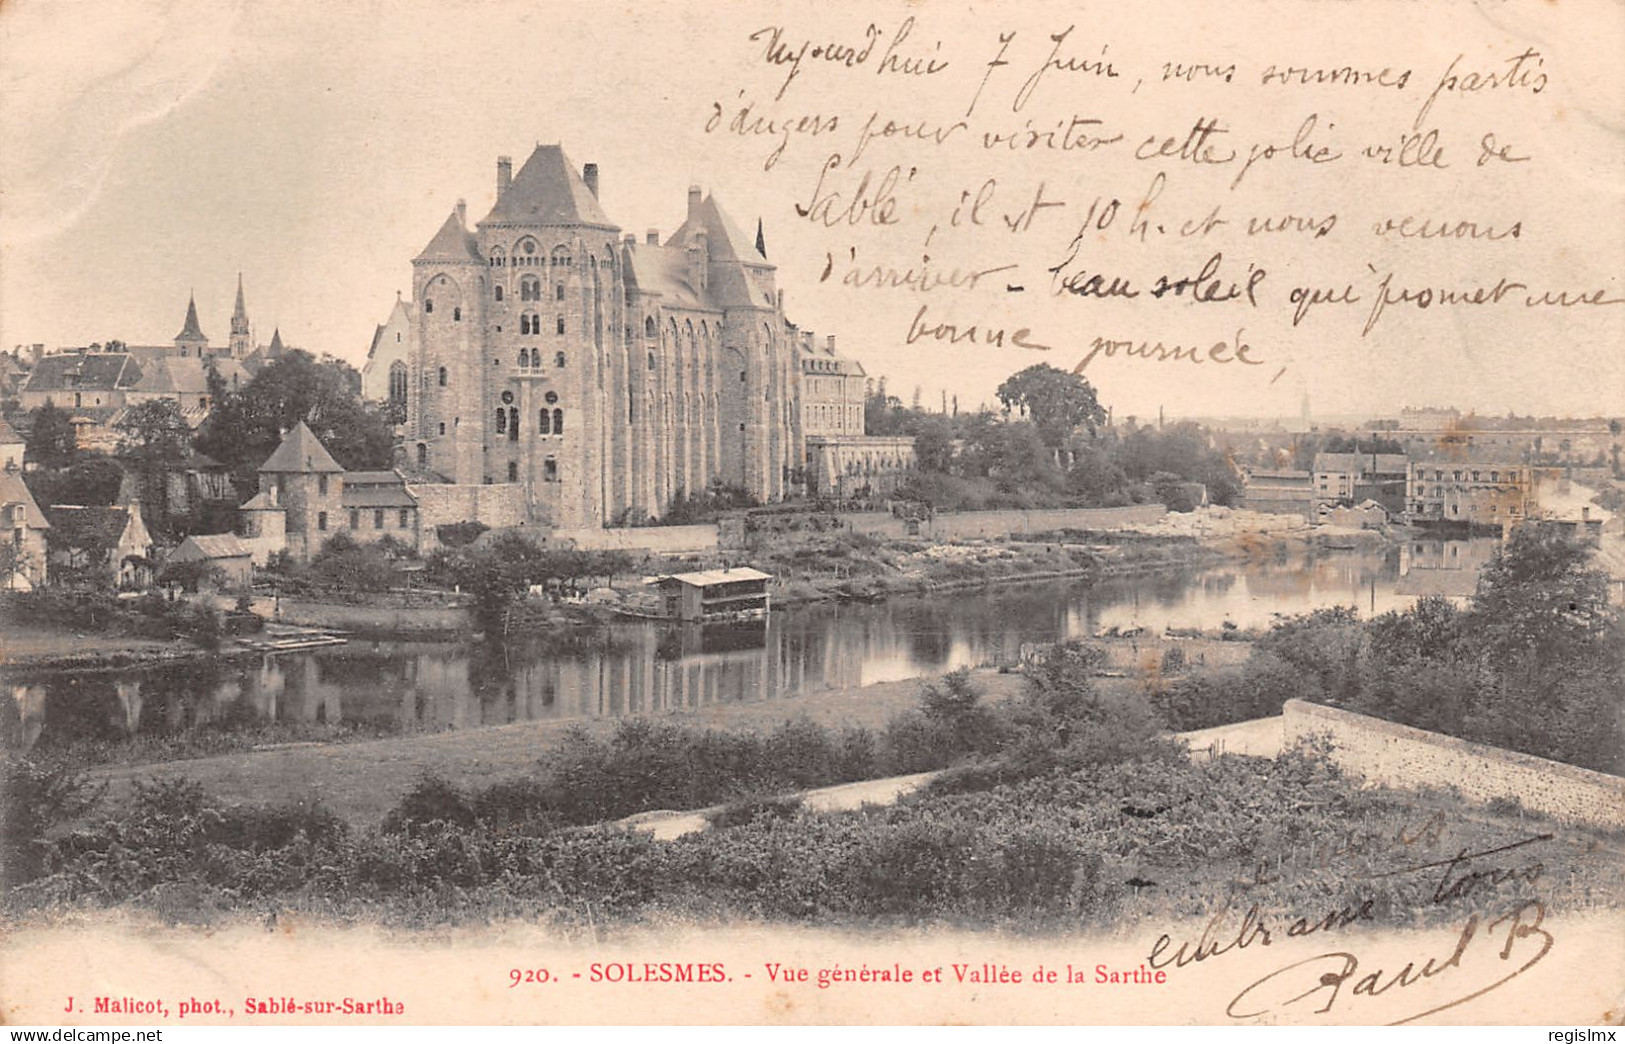 Aujourd'hui 7 Juin, nous sommes partis
d'angers pour visiter cette jolie ville de
Sablé, il est 10 h. et nous venons
d'arriver - beau soleil qui promet une
bonne journée,
Je vous
embrasse tous
Paul B
920. - SOLESMES. - Vue générale et Vallée de la Sarthe
J. Malicot, phot., Sablé-sur-Sarthe
regislmx